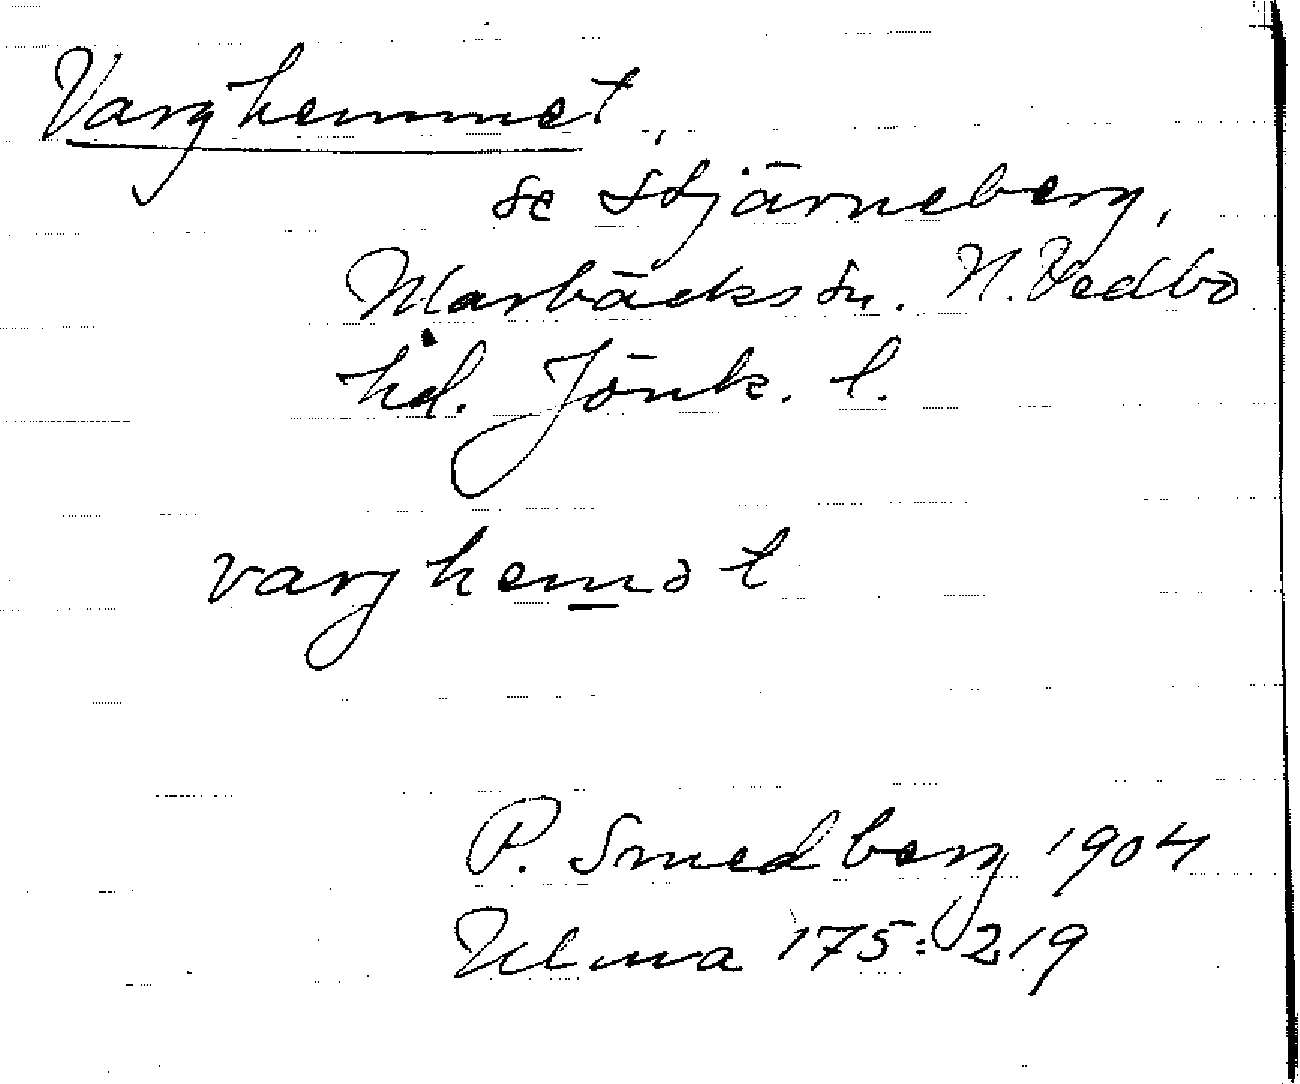 Varghemmet,
se Stjärneberg,
Marbäcks sn. N. Vedbo
hd. Jönk. l.
varghemət
P. Smedberg 1904
Ulma 175:219